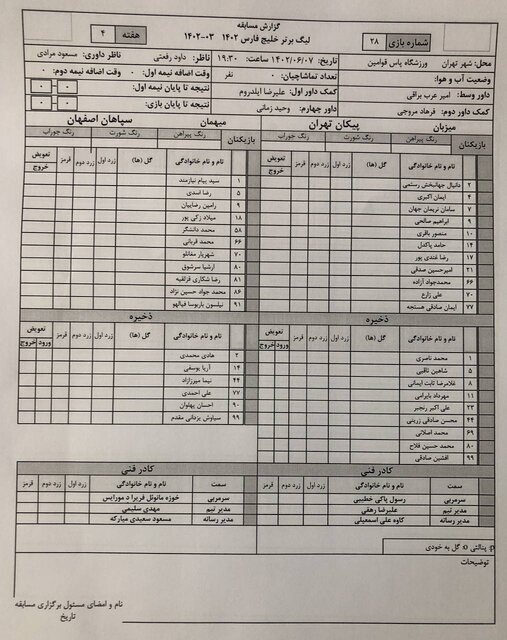 گزارش مسابقه
لیگ برتر خلیج فارس ۱۴۰۲ ۰۳-۱۴۰۲
شماره بازی ۲۸
هفته ۴
محل: شهر تهران ورزشگاه پاس قوامین تاریخ: ۱۴۰۲/۰۶/۰۷ ساعت: ۱۹:۳۰ ناظر: داود رفعتی ناظر داوری: مسعود مرادی
وضعیت آب و هوا: تعداد تماشاچیان: نفر وقت اضافه نیمه اول: ۰ وقت اضافه نیمه دوم: ۰
داور وسط: امیر عرب براقی کمک داور اول: علیرضا ایلدروم نتیجه تا پایان نیمه اول: ۰ - ۰
کمک داور دوم: فرهاد مروجی داور چهارم: وحید زمانی نتیجه تا پایان بازی: ۰ - ۰
میزبان پیکان تهران میهمان سپاهان اصفهان
بازیکنان رنگ پیراهن رنگ شورت رنگ جوراب
بازیکنان رنگ پیراهن رنگ شورت رنگ جوراب
نام و نام خانوادگی گل (ها) زرد اول زرد دوم قرمز تعویض خروج
۲ دانیال جهانبخش رستمی
۴ ایمان اکبری
۷ سامان نریمان جهان
۹ ابراهیم صالحی
۱۰ منصور باقری
۱۴ حامد پاکدل
۱۷ رضا غندی پور
۲۱ امیرحسین صدقی
۶۶ محمدجواد آزاده
۷۰ علی زارع
۷۷ ایمان صادقی هسنجه
نام و نام خانوادگی گل (ها) زرد اول زرد دوم قرمز تعویض خروج
۱ سید پیام نیازمند
۵ رضا اسدی
۹ رامین رضاییان
۱۸ میلاد زکی پور
۵۸ محمد دانشگر
۶۶ محمد قربانی
۷۰ شهریار مغانلو
۸۰ آرشیا سرشوق
۸۱ رضا شکاری قزلقیه
۸۶ محمد جواد حسین نژاد
۹۱ نیلسون باربوسا
ذخیره
نام و نام خانوادگی گل (ها) زرد اول زرد دوم قرمز تعویض ورود خروج
۱ محمد ناصری
۵ شاهین ثاقبی
۸ غلامرضا ثابت ایمانی
۱۱ مهرداد بایرامی
۲۳ علی اکبر رنجبر
۴۴ محسن صادقی زرینی
۶۹ محمد اصلانی
۸۰ محمد حسین فلاح
۹۹ افشین صادقی
ذخیره
نام و نام خانوادگی گل (ها) زرد اول زرد دوم قرمز تعویض ورود خروج
۲ هادی محمدی
۱۴ آریا یوسفی
۴۴ نیما میرزازاد
۷۷ علی احمدی
۹۰ احسان پهلوان
۹۹ سیاوش یزدانی مقدم
کادر فنی
سمت نام و نام خانوادگی زرد اول زرد دوم قرمز
سرمربی رسول پاکی خطیبی
مدیر تیم علیرضا رهقی
مدیر رسانه کاوه علی اسمعیلی
کادر فنی
سمت نام و نام خانوادگی زرد اول زرد دوم قرمز
سرمربی خوزه مانوئل فریرا د مورایس
مدیر تیم مهدی سلیمی
مدیر رسانه مسعود سعیدی مبارکه
p: پنالتی o: گل به خودی
توضیحات
نام و امضای مسئول برگزاری مسابقه
تاریخ